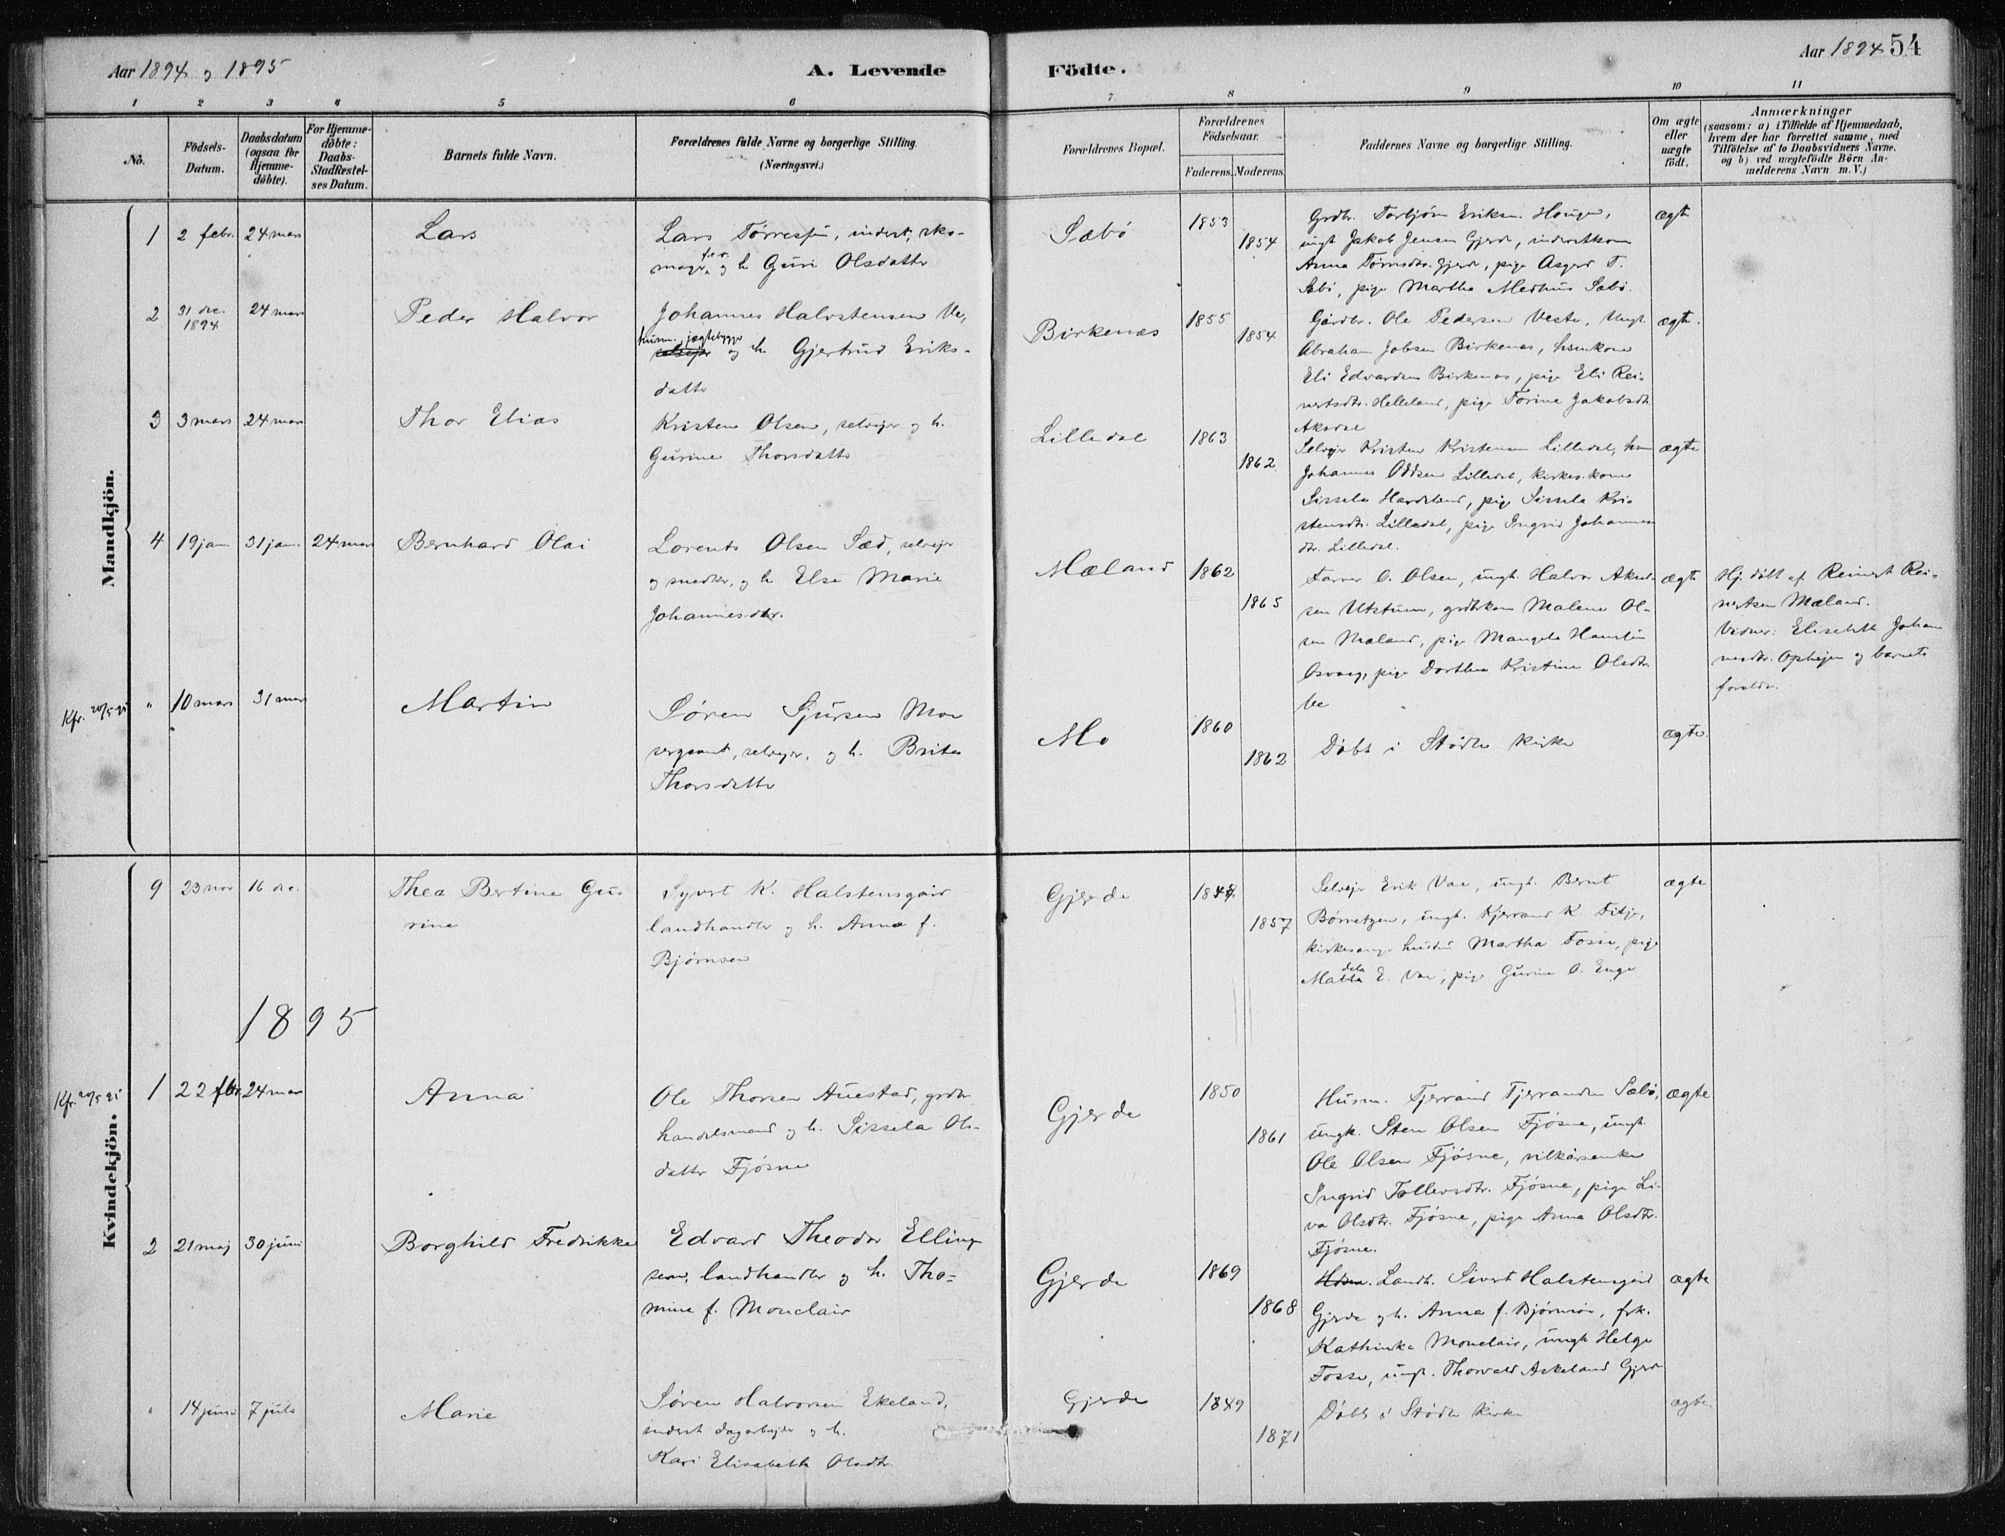 Aar 1894 og 1895
A. Levende
Födte.
Aar 1894
54
1 2 3 4 5 6 7 8 9 10 11
No.
Födsels-
Datum.
Daabsdatum
(ogsaa for
Hjemme-
döbte).
For Hjemme-
döbte:
Daabs-
Stadfæstel-
ses Datum.
Barnets fulde Navn.
Forældrenes fulde Navne og borgerlige Stilling.
(Næringsvei.)
Forældrenes Bopæl.
Forældrenes
Födselsaar.
Faderens.
Moderens.
Faddernes Navne og borgerlige Stilling.
Om ægte
eller
uægte
födt.
Anmærkninger
(saasom: a) i Tilfælde af Hjemmedaab,
hvem der har forrettet samme, med
Tilföielse af to Daabsvidners Navne.
og b) ved uægtefödte Börn An-
melderens Navn m. V.)
Mandkjön.
1 2 febr. 24 mars
Lars
Lars Tørresen, inderst, sko-
mager og h. Guri Olsdatter
Sæbö
1853
1854
Grdbr. Torbjörn Eriksen Houge,
ungk. Jakob Jensen Gjerde, inderstkone
Anna Tørresdtr. Gjerde, pige Asgerd T.
Sæbö, pige Martha Medhus Sæbö.
ægte
2 31 dec. 1894 24 mars
Peder Halvor
Johannes Halvstensen Ve,
husm. jægtebygger
og h. Gjertrud Eriks-
datter
Birkenæs
1855
1854
Gårdbr. Ole Pedersen Veste, Ungk.
Abraham Jobsen Birkenæs, huskone
Eli Edvardsen Birkenæs, pige Eli Rei-
nertsdtr. Helleland, pige Torine Jakobsdtr.
Aksdal
ægte.
3 3 mars 24 mars
Thor Elias
Kristen Olsen, selvejer og h.
Gurine Thorsdatter
Lilledal
1863
1862
Selvejer Kristen Kristensen Lilledal, husm
Johannes Oddsen Lilledal, kirkes.kone
Sissela Hardeland, pige Sissela Kri-
stensdtr. Lilledal, pige Ingrid Johannes
dtr. Lilledal.
ægte
4 19 jan. 31 jan. 24 mars
Bernhard Olai
Lorents Olsen Sæd, selvejer
og snedker, og h. Else Marie
Johannesdtr.
Mæland
1862
1865
Farver O. Olsen, ungk. Halvor Aksel-
sen Utstuen, grdbrkone Malene Ol-
sen Mæland, pige Mangela Hansen
Osvaag, pige Dorthea Kristine Olsdtr.
Ve
ægte
Hj. døbt af Reinert Rei-
nertsen Mæland.
Vidner: Elisabeth Johan
nesdtr. Ophejen og barnets
forældre.
Kfr. 20/5 95
" 10 mars 31 mars
Martin
Søren Sjursen Mo
sergeant, selvejer, og h. Brita
Thorsdatter
Mo
1860
1862
Døbt i Stødle kirke
ægte.
Kvindekjön.
9 23 nov 16 dec.
Thea Bertine Gu-
rine
Syvert K. Halstensgård
landhandler og h. Anna f.
Bjørnsen
Gjerde
1848.
1857
Selvejer Erik Vae, ungk. Bernt
Børretzen, ungk. Kjerrand K. Fitje,
kirkesanger hustru Martha Fosse, pige
E. Vae, pige Gurine O. Enge
ægte
1895
Kfr. 20/5 95
1 22 febr 24 mars
Anna
Ole Thorsen Auestad, grdbr.
handelsmand og h. Sissela Ols-
datter Fjøsne
Gjerde
1850
1861
Husm. Tjerrand Tjerrandsen Sæbö,
ungk. Sten Olsen Fjøsne, ungk.
Ole Olsen Fjøsne, vilkårsenke
Ingrid Tollevsdtr. Fjøsne, pige Li-
va Olsdtr. Fjøsne, pige Anna Olsdtr.
Fjøsne.
ægte
2 21 maj 30 juni
Borghild Fredrikke
Edvard Theodor Elling-
sen, landhandler og h. Tho-
mine f. Monclair
Gjerde
1869
1868
Landh. Sivert Halstensgård
Gjerde og h. Anna f. Bjørnsen, frk.
Kathinka Monclair, ungk Helge
Fosse, ungk. Thorvald Askeland Gjerde
ægte
" 14 juni 7 juli
Marie
Søren Halvorsen Ekeland,
inderst dagarbejder og h.
Kari Elisabeth Olsdtr.
Gjerde
1849
1871
Døbt i Stødle kirke
ægte.